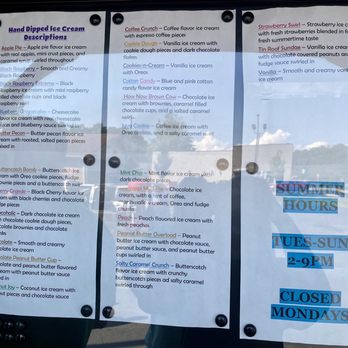 Hand Dipped Ice Cream
Descriptions
Apple Pie – Apple pie flavor ice cream
with real apples, mixed with pie crust
pieces, and caramel swirled throughout
Black Raspberry – Smooth and creamy
Black Raspberry
Black
Raspberry ice cream with mini raspberry
filled chocolate cups and black
raspberry
Cheesecake
flavor ice cream with real
pieces and blueberry sauce swirled in
Butter Pecan – Butter pecan flavor ice
cream with roasted, salted pecan pieces
mixed in
Butterscotch Bomb – Butterscotch ice
cream with Oreo cookie pieces, fudge
brownie pieces and a butterscotch swirl
Black cherry flavor ice
cream with black cherries and chocolate
pieces
Chocoholic – Dark chocolate ice cream
with chocolate cookie dough pieces,
chocolate brownies and chocolate
chunks
Chocolate – Smooth and creamy
chocolate ice cream
Chocolate Peanut Butter Cup –
Chocolate and peanut butter flavored
ice cream with peanut butter swirled in
Coconut Joy – Coconut ice cream with
coconut pieces and chocolate sauce
Coffee Crunch – Coffee flavor ice cream
with espresso coffee pieces
Cookie Dough – Vanilla ice cream with
cookie dough pieces and dark chocolate
flakes
Cookies-n-Cream – Vanilla ice cream
with Oreos
Cotton Candy – Blue and pink cotton
candy flavor ice cream
How Now Brown Cow – Chocolate ice
cream with brownies, caramel filled
chocolate cups, and a salted caramel
swirl
Mint Chip – Mint flavor ice cream with
dark chocolate pieces
Chocolate ice
cream, with a hint of coffee,
brownie pieces, Oreo and fudge
chunks
Peach – Peach flavored ice cream with
fresh peaches
Peanut Butter Overload – Peanut
butter ice cream with chocolate sauce,
peanut butter sauce, and peanut butter
cups swirled in
Salty Caramel Crunch – Butterscotch
flavor ice cream with crunchy
butterscotch pieces and salty caramel
swirled through
Strawberry Swirl – Strawberry ice cream
with fresh strawberries blended in for a
fresh summertime taste
Tin Roof Sundae – Vanilla ice cream
with chocolate covered peanuts and
fudge sauce swirled in
Vanilla – Smooth and creamy vanilla
ice cream
SUMMER
HOURS
TUES-SUN
2-9PM
CLOSED
MONDAYS